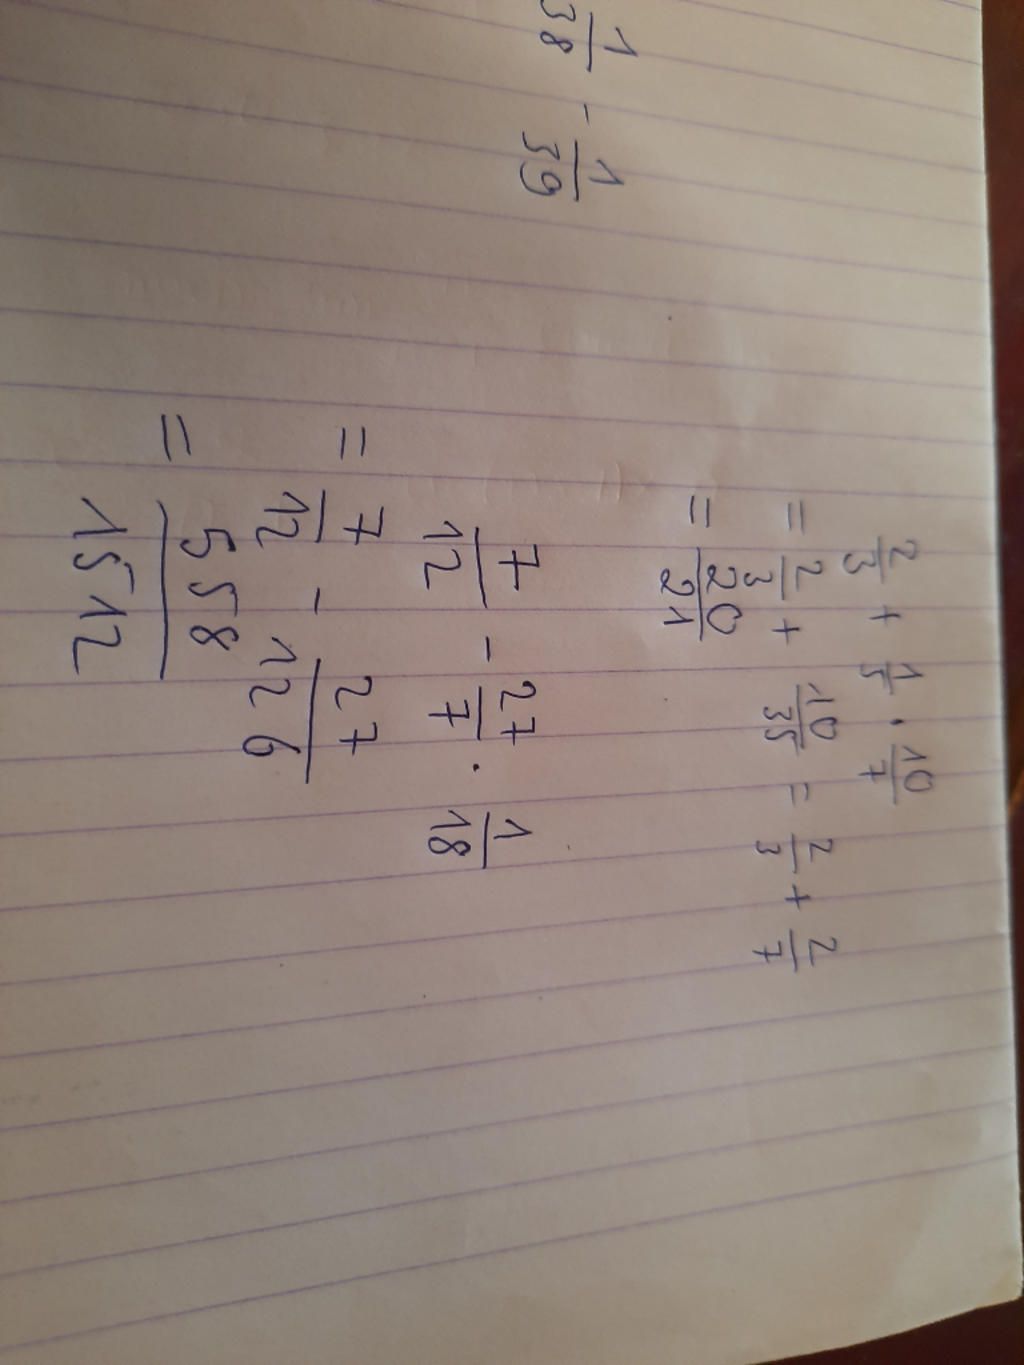 1/38 - 1/39
2/3 + 1/5 · 10/7
= 2/3 + 10/35 = 2/3 + 2/7
= 20/21
7/12 - 27/7 · 1/18
= 7/12 - 27/126
= 558/1512